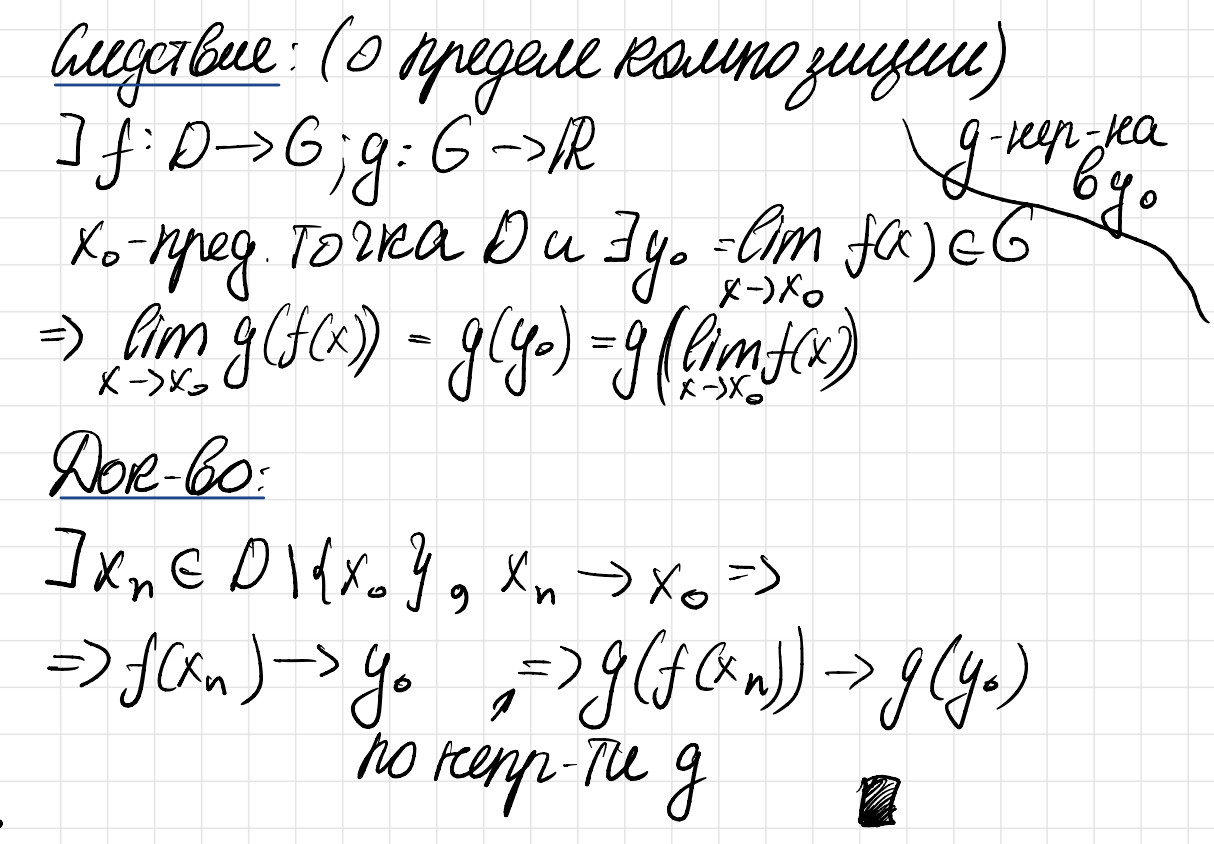 Следствие: (о пределе композиции)
] f: D → G; g: G → ℝ
g-непр-на
в y₀
x₀-пред. точка D и ∃ y₀ = lim f(x) ∈ G
x→x₀
⇒ lim g(f(x)) = g(y₀) = g(lim f(x))
x→x₀ x→x₀
Док-во:
] xₙ ∈ D \ {x₀}, xₙ → x₀ ⇒
⇒ f(xₙ) → y₀ ⇒ g(f(xₙ)) → g(y₀)
по непр-ти g